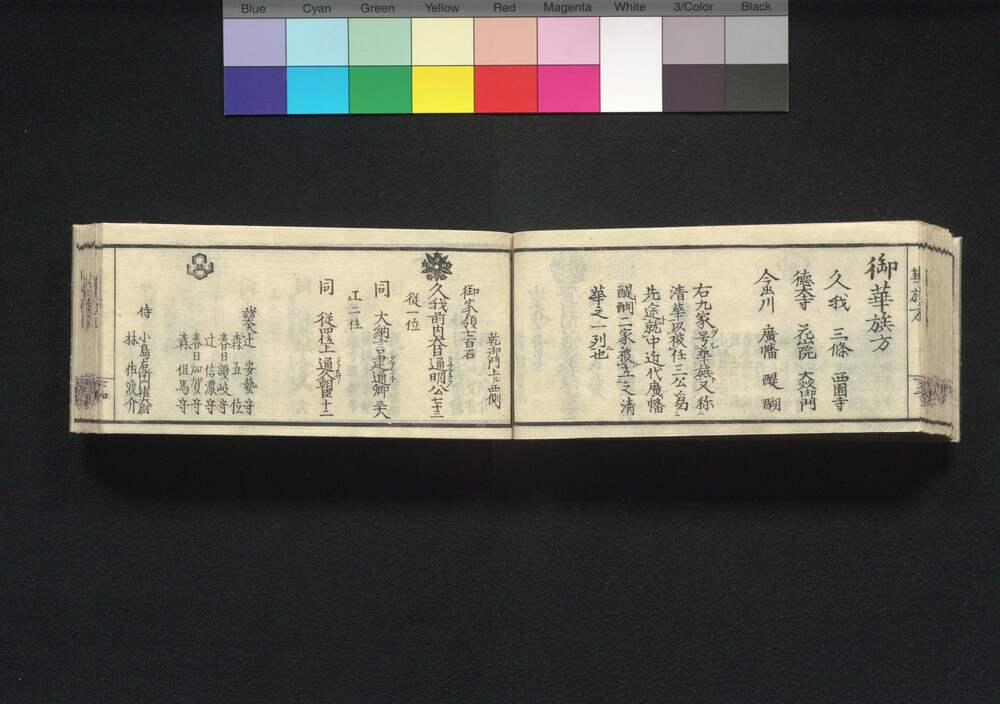 Blue Cyan Green Yellow Red Magenta White 3/Color Black
華族方
御華族方
久我 三條 西園寺
德大寺 花山院 大炊御門
今出川 廣幡 醍醐
右九家号華族又称
清華以被任三公為
先途就中近代廣幡
醍醐二家被五之清
華之一列也
乾御門上ル西側
御家領七百石
久我前内大臣通明公七十三
従一位
同 大納言建通卿
正二位
同 従四位上通久朝臣十二
諸大夫
辻 安藝守
森 五位
春日讃岐守
辻 信濃守
春日加賀守
森 但馬守
侍
小島右衛門権大尉
林 作渡介